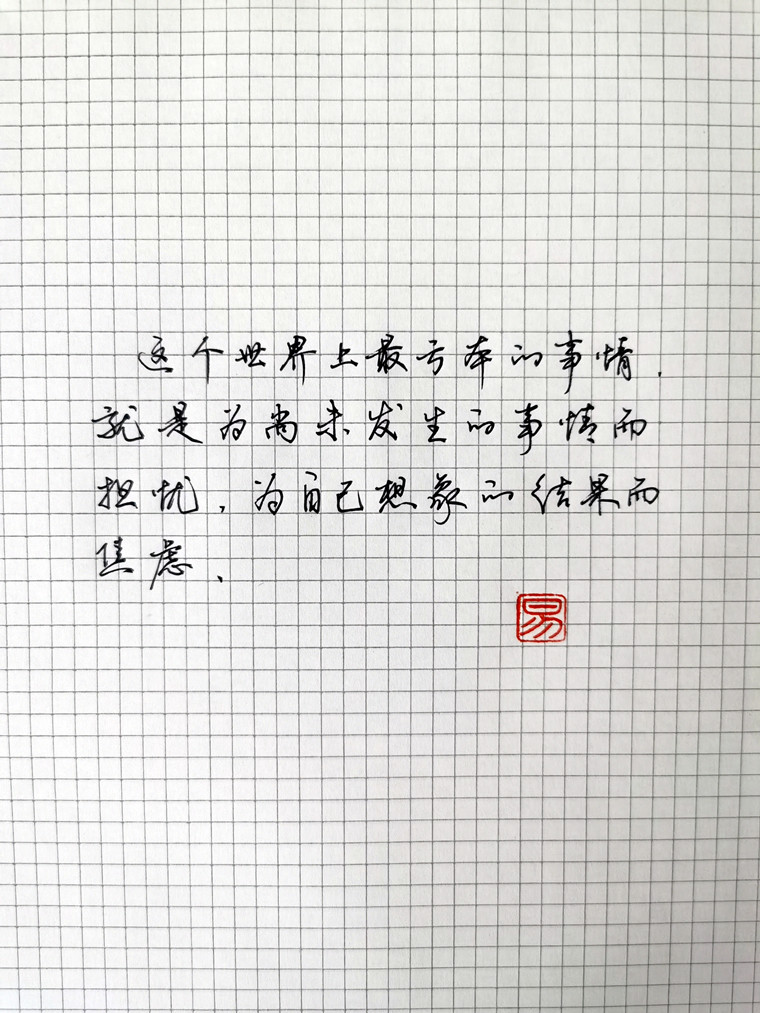 这个世界上最亏本的事情,
就是为尚未发生的事情而
担忧,为自己想象的结果而
焦虑、
易